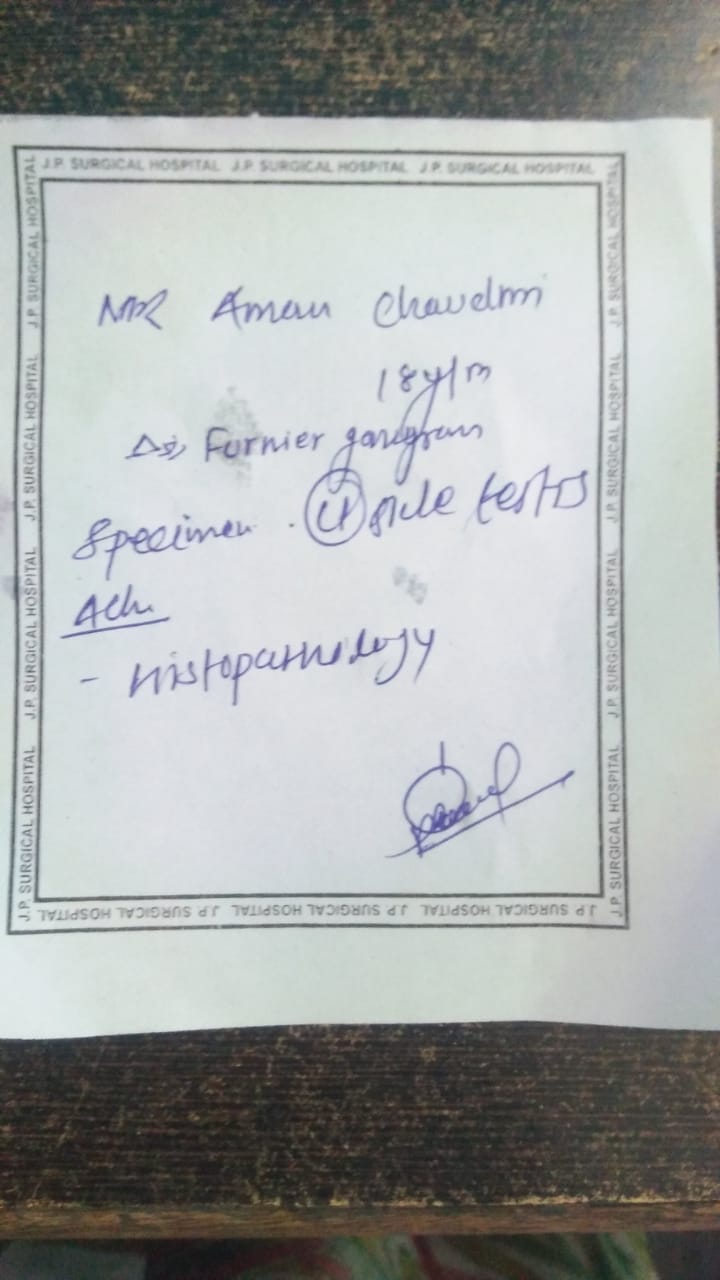 J.P. SURGICAL HOSPITAL J.P. SURGICAL HOSPITAL J.P. SURGICAL HOSPITAL
MR Aman Chaudhri
18y/m
Furnier gangram
Specimen. Lt side testis
Adv
- Histopathology
J.P. SURGICAL HOSPITAL J.P. SURGICAL HOSPITAL J.P. SURGICAL HOSPITAL
J.P. SURGICAL HOSPITAL J.P. SURGICAL HOSPITAL J.P. SURGICAL HOSPITAL J.P. SURGICAL HOSPITAL
J.P. SURGICAL HOSPITAL J.P. SURGICAL HOSPITAL J.P. SURGICAL HOSPITAL J.P. SURGICAL HOSPITAL